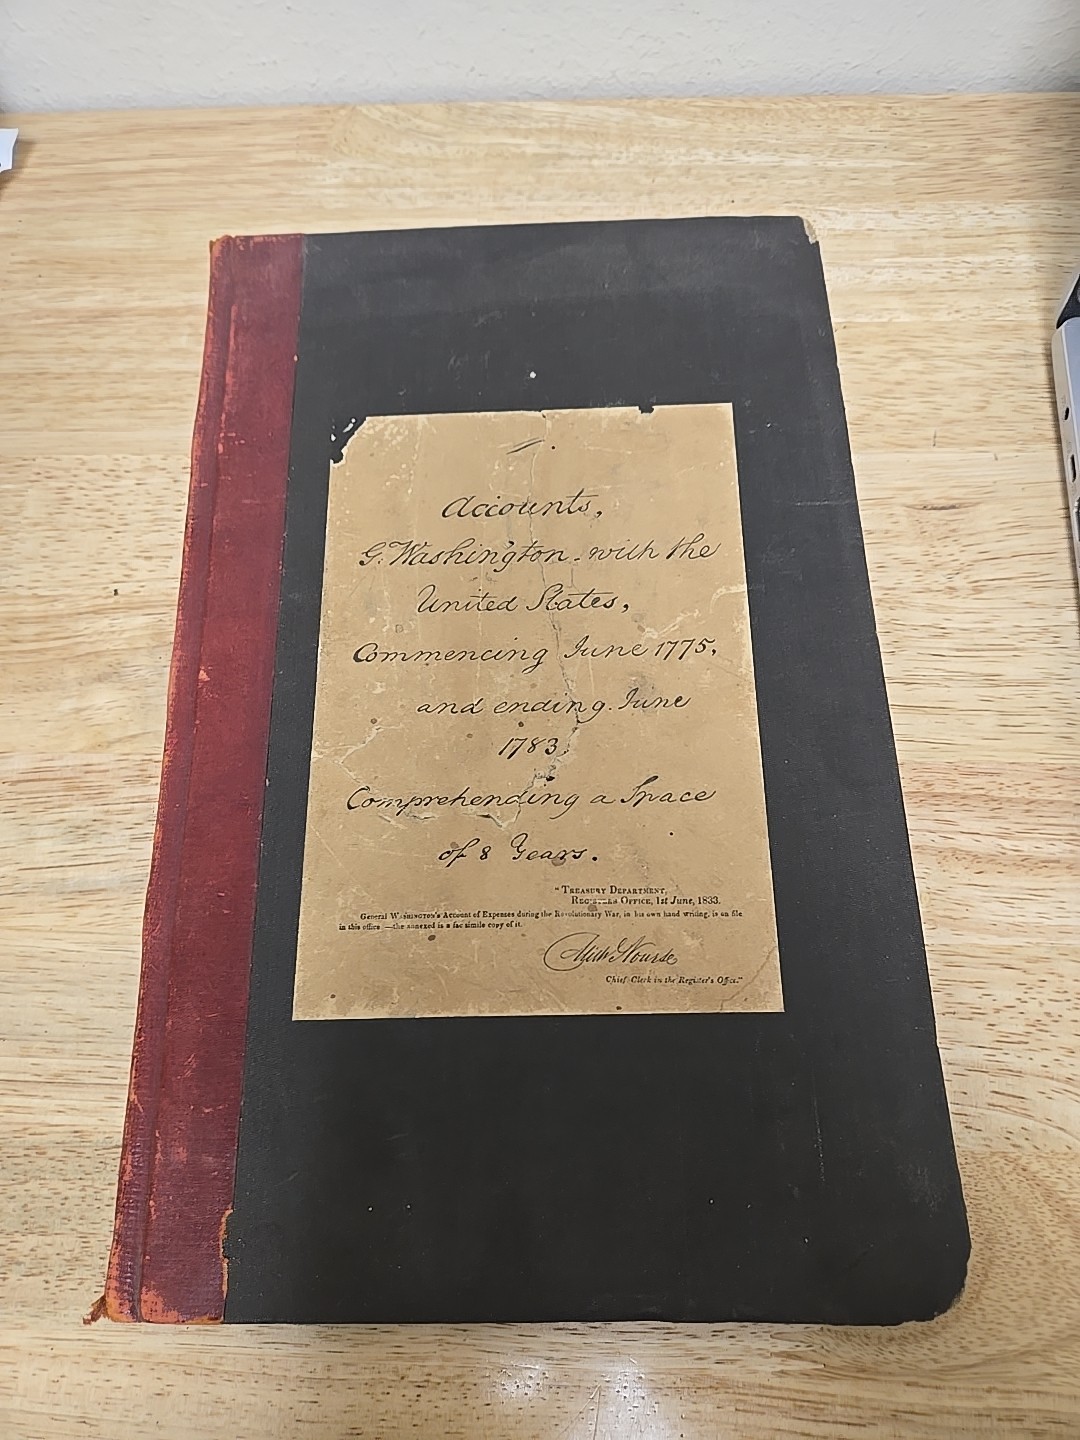 Accounts,
G. Washington with the
United States,
Commencing June 1775,
and ending June
1783
Comprehending a Space
of 8 Years.
"Treasury Department,
Registers Office, 1st June, 1833.
General Washington's Account of Expenses during the Revolutionary War, in his own hand writing, is on file
in this office —the annexed is a fac simile copy of it.
Mich Nourse
Chief Clerk in the Register's Office."